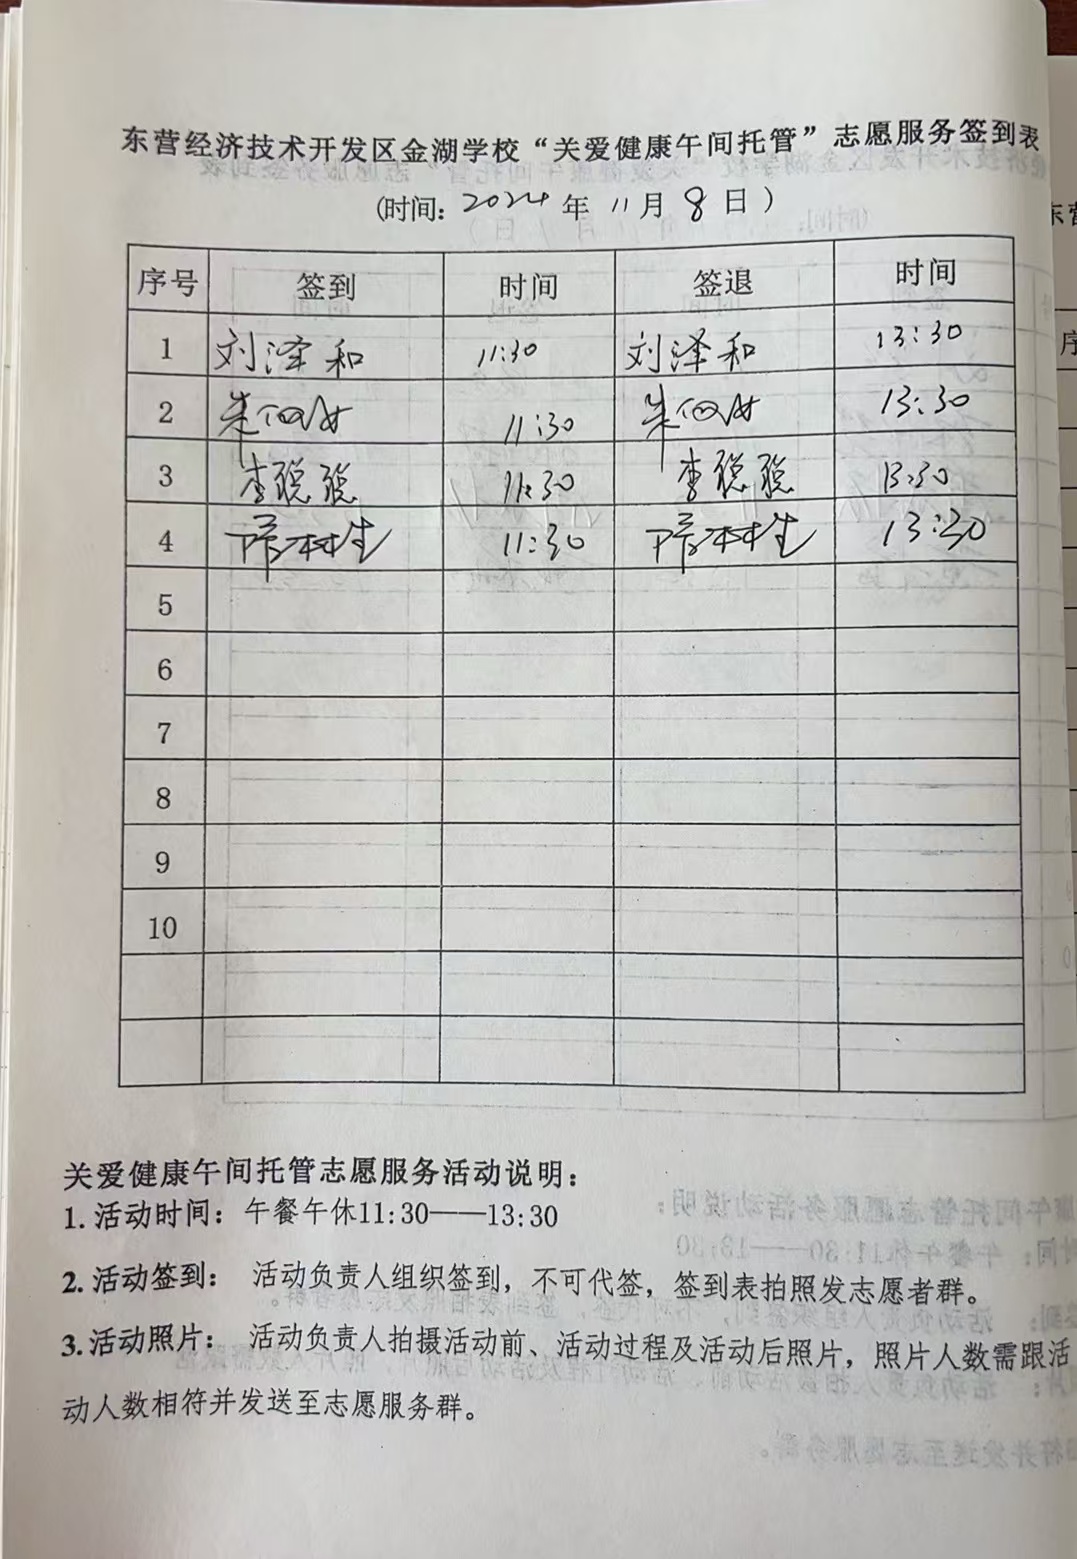 东营经济技术开发区金湖学校“关爱健康午间托管”志愿服务签到表
(时间: 2024 年 11 月 8 日)
序号 签到 时间 签退 时间
1 刘泽和 11:30 刘泽和 13:30
2 朱 11:30 朱 13:30
3 李聪聪 11:30 李聪聪 13:30
4 11:30 13:30
5
6
7
8
9
10
关爱健康午间托管志愿服务活动说明:
1.活动时间: 午餐午休11:30——13:30
2.活动签到: 活动负责人组织签到，不可代签，签到表拍照发志愿者群。
3.活动照片: 活动负责人拍摄活动前、活动过程及活动后照片，照片人数需跟活
动人数相符并发送至志愿服务群。